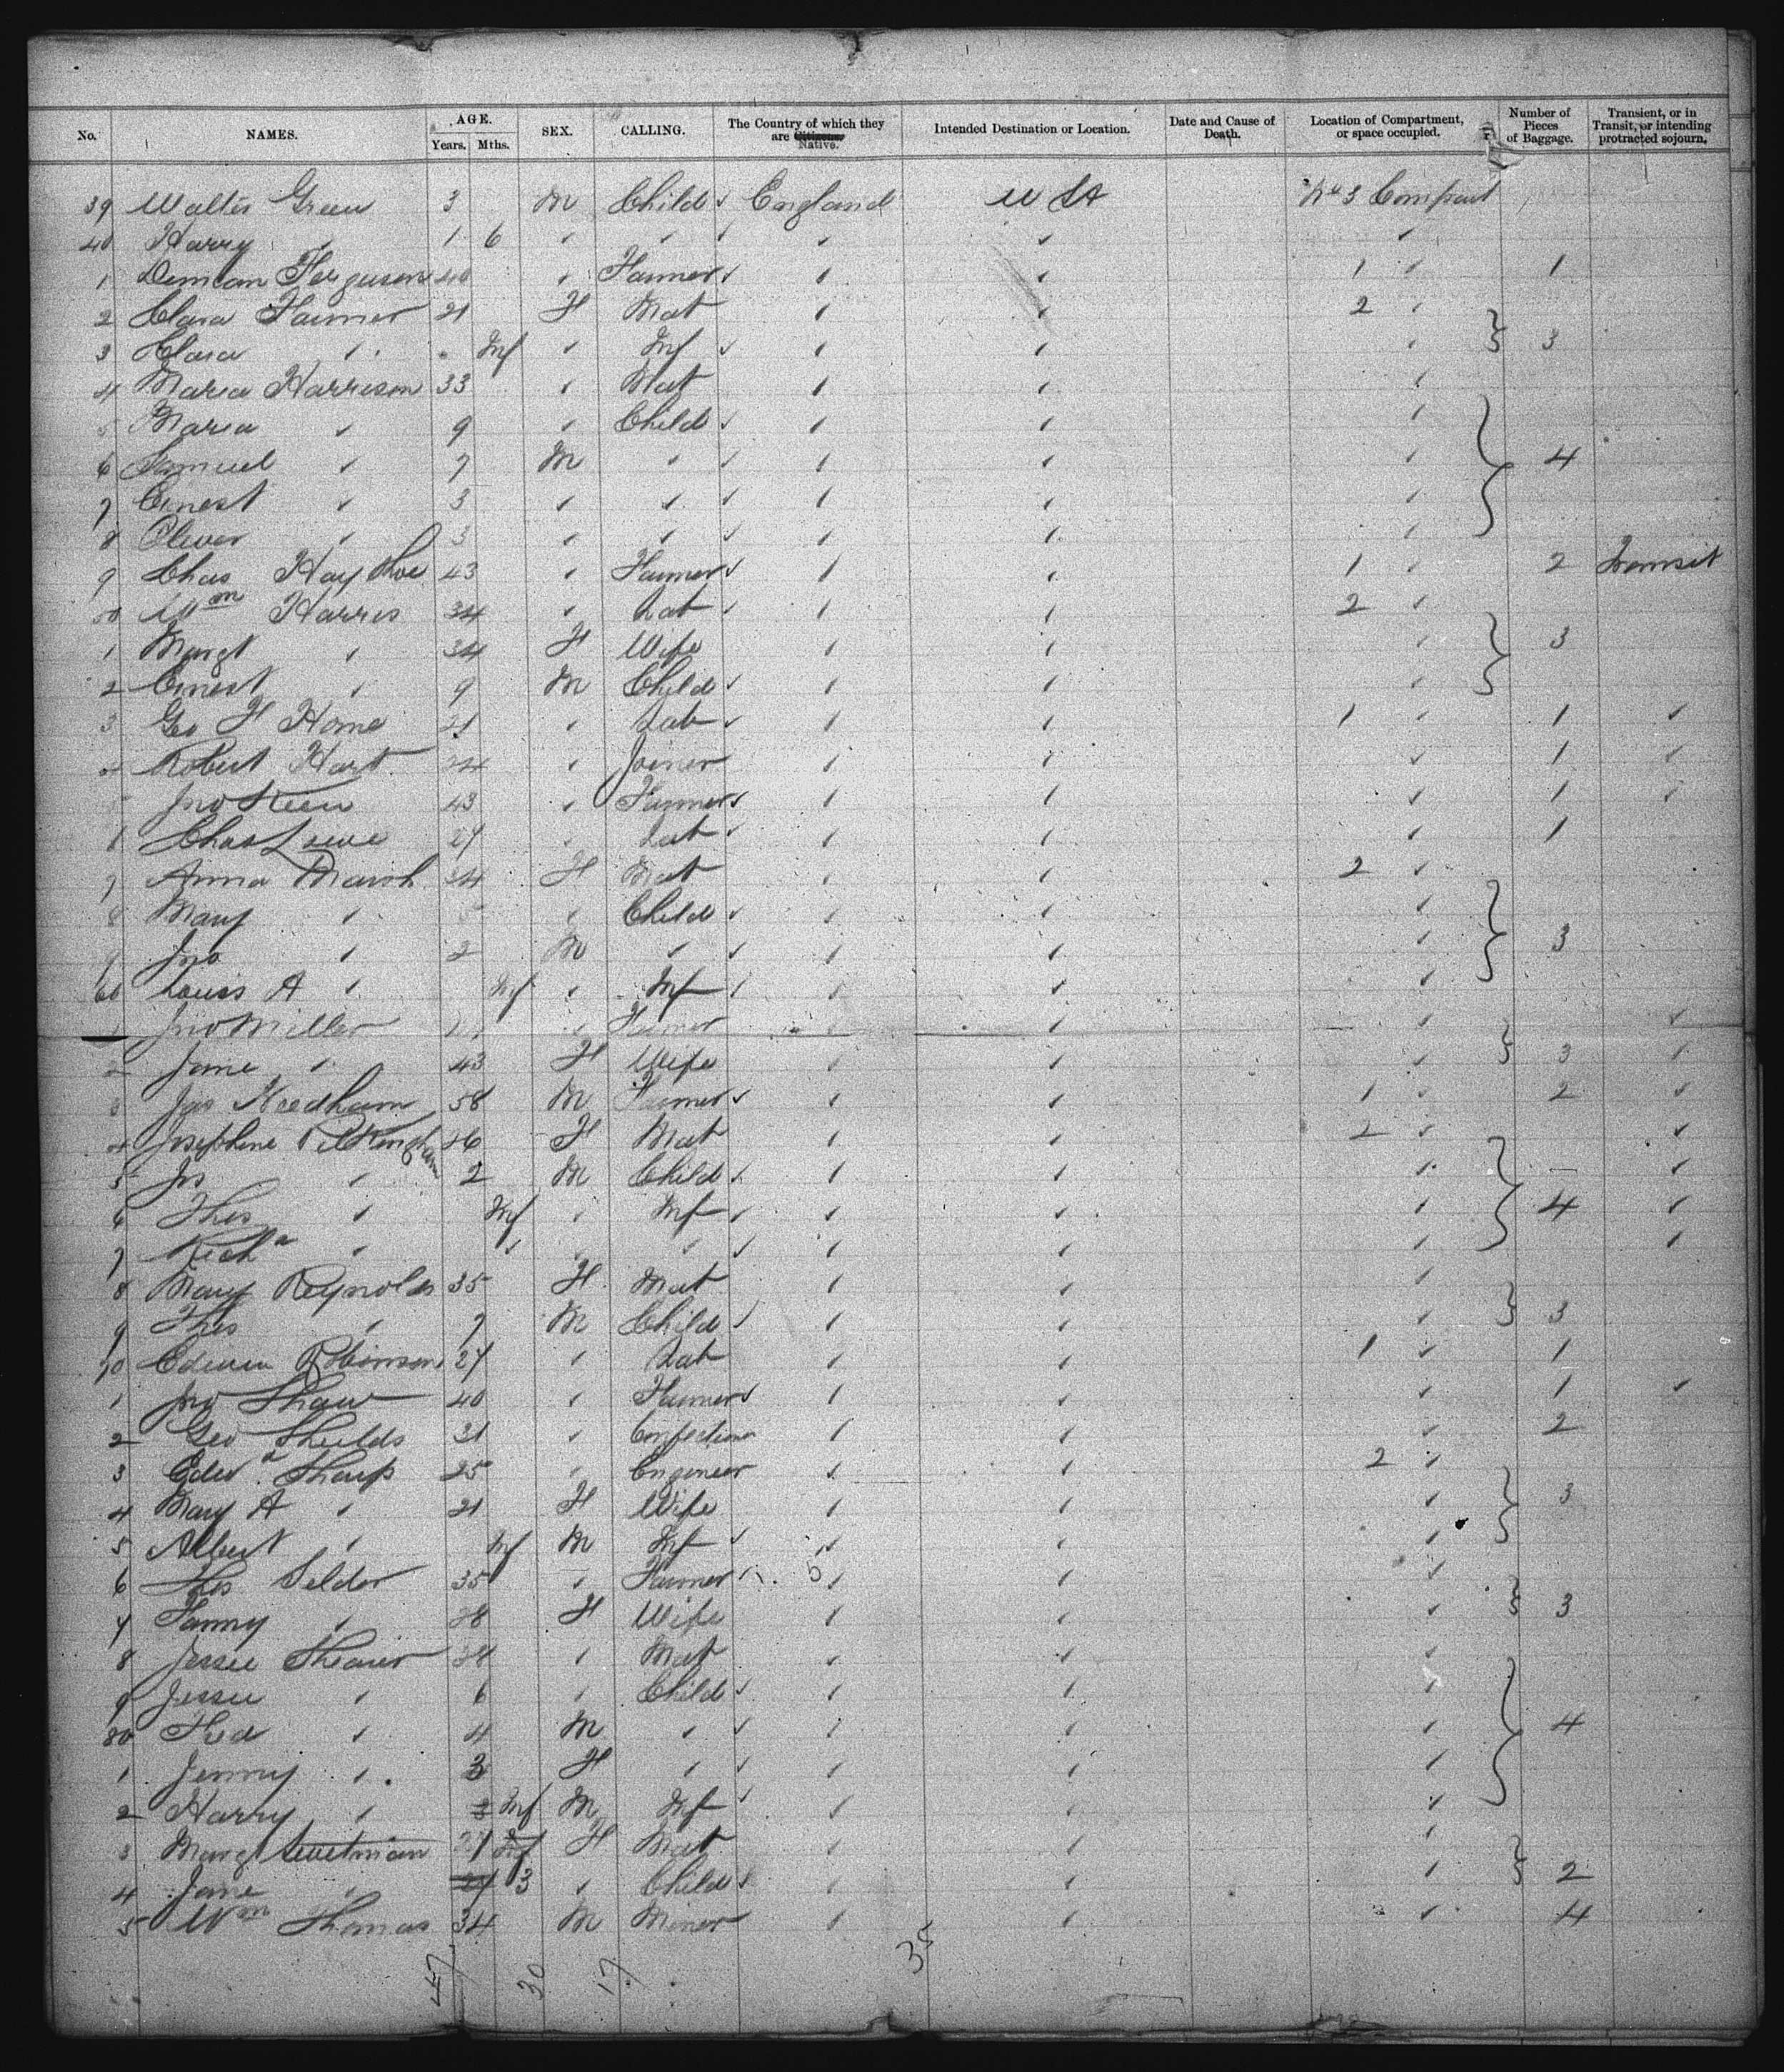 No. NAMES. AGE. Years. Mths. SEX. CALLING. The Country of which they are Citizens. Native. Intended Destination or Location. Date and Cause of Death. Location of Compartment, or space occupied. Number of Pieces of Baggage. Transient, or in Transit, or intending protracted sojourn.
39 Walter Green 3 M Child ✓ England U S A No 3 Compart
40 Harry ✓ 1 6 ✓ ✓ ✓ ✓ ✓ ✓
1 Ferguson 40 ✓ Farmer ✓ ✓ ✓ 1 ✓ 1
2 Clara Farmer 21 F Mat ✓ ✓ 2 ✓
3 Clara ✓ Inf ✓ Inf ✓ ✓ ✓ ✓ 3
4 Maria Harrison 33 ✓ Mat ✓ ✓ ✓
5 Maria ✓ 9 ✓ Child ✓ ✓ ✓ ✓
6 Samuel ✓ 7 M ✓ ✓ ✓ ✓ ✓ 4
7 Ernest ✓ 5 ✓ ✓ ✓ ✓ ✓ ✓
8 Oliver ✓ 3 ✓ ✓ ✓ ✓ ✓ ✓
9 Chas Hay 43 ✓ Farmer ✓ ✓ ✓ 1 ✓ 2 Transit
50 Wm Harris 34 ✓ Lab ✓ ✓ ✓ 2 ✓
1 Margt ✓ 34 F Wife ✓ ✓ ✓ 3
2 Ernest ✓ 9 M Child ✓ ✓ ✓ ✓
3 Geo H Horne 21 ✓ Lab ✓ ✓ ✓ 1 ✓ 1 ✓
4 Robert Hart 24 ✓ Joiner ✓ ✓ ✓ 1 ✓
5 Jno Keen 43 ✓ Farmer ✓ ✓ ✓ ✓ 1 ✓
6 Chas Lowe 27 ✓ Lab ✓ ✓ ✓ ✓ 1
7 Anna Marsh 34 F Mat ✓ ✓ 2 ✓
8 Mary ✓ 5 ✓ Child ✓ ✓ ✓ ✓
9 Jno ✓ 2 M ✓ ✓ ✓ ✓ ✓ 3
60 Louis A ✓ Inf ✓ Inf ✓ ✓ ✓ ✓
1 Jno Miller ✓ Farmer ✓ ✓ ✓ ✓
2 Jane ✓ 43 F Wife ✓ ✓ ✓ 3 ✓
3 Jas Needham 58 M Farmer ✓ ✓ ✓ 1 ✓ 2 ✓
4 Josephine 26 F Mat ✓ ✓ 2 ✓ ✓
5 Js ✓ 2 M Child ✓ ✓ ✓ ✓ — ✓
6 Thos ✓ Inf ✓ Inf ✓ ✓ ✓ ✓ 4 ✓
7 Richd ✓ ✓ ✓ ✓ ✓ ✓ ✓ ✓ ✓
8 Mary Reynolds 35 F Mat ✓ ✓ ✓
9 Thos ✓ 7 M Child ✓ ✓ ✓ ✓ 3
70 Edwin Robinson 27 ✓ Lab ✓ ✓ 1 ✓ 1
1 Jno Shaw 40 ✓ Farmer ✓ ✓ ✓ ✓ 1 ✓
2 Geo Shields 31 ✓ Confectioner ✓ ✓ ✓ 2
3 Edwd Sharp 25 ✓ Engineer ✓ ✓ 2 ✓
4 Mary A ✓ 21 F Wife ✓ ✓ ✓ 3
5 Albert ✓ Inf M Inf ✓ ✓ ✓ ✓
6 Thos Selder 35 ✓ Farmer ✓ 5 ✓ ✓ ✓
7 Fanny ✓ 28 F Wife ✓ ✓ ✓ 3
8 Jessie Shearer 34 ✓ Mat ✓ ✓ ✓
9 Jessie ✓ 6 ✓ Child ✓ ✓ ✓ ✓
80 Fred ✓ 4 M ✓ ✓ ✓ ✓ ✓ 4
1 Jenny ✓ 3 F ✓ ✓ ✓ ✓ ✓
2 Harry ✓ Inf M Inf ✓ ✓ ✓ ✓
3 Margt 21 Inf F Mat ✓ ✓ ✓
4 Jane ✓ 3 ✓ Child ✓ ✓ ✓ ✓ 2
5 Wm Thomas 34 M Miner ✓ ✓ ✓ 4
47 30 17 35